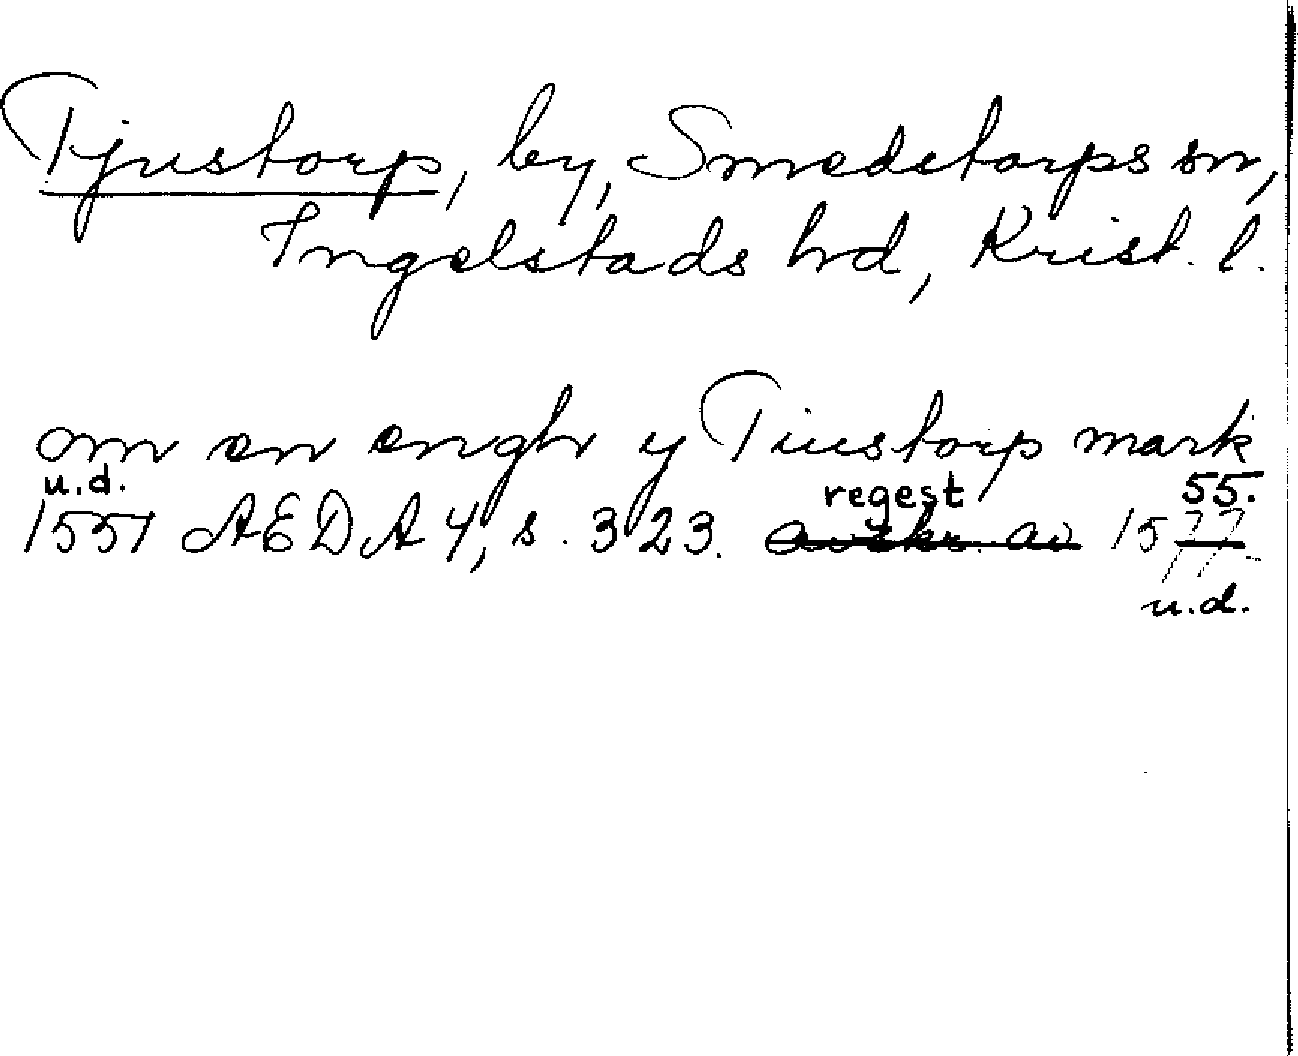 Tjustorp, by, Smedstorps sn,
Ingelstads hd, Krist. l.
om en engh y Tiustorp mark
u.d. regest 55.
1551 AEDA 4, s. 323. avskr. av 1577
u.d.